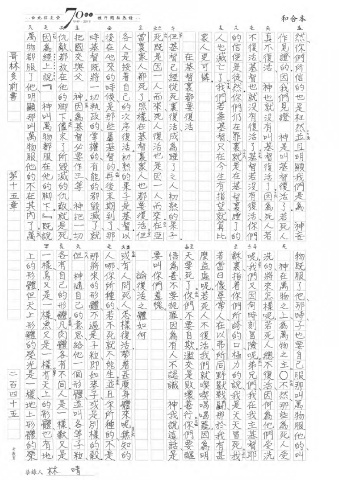 和合本
70
然你們所信的也是枉然並且明顯我們是為 神妄
作見證的因我們見證 神是叫基督復活了若死人
真不復活 神也就沒有叫基督復活了因為死人若
不復活基督也就沒有復活了基督若沒有復活你們
的信便是徒然你們仍在罪裏就是在基督裏睡了的
人也滅亡了我們若靠基督只在今生有指望就算比
眾人更可憐
在基督裏都要復活
但基督已經從死裏復活成為睡了之人初熟的果子
死既是因一人而來死人復活也是因一人而來在亞
當裏眾人都死了照樣在基督裏眾人也都要復活但
各人是按着自己的次序復活初熟的果子是基督以
後在他來的時候是那些屬基督的再後末期到了那
時基督既將一切執政的掌權的有能的都毀滅了就
把國交與父 神因為基督必要作王等 神把一切
仇敵都放在他的腳下儘末了所毀滅的仇敵就是死
因為經上說 神叫萬物都服在他的腳下既說
萬物都服了他明顯那叫萬物服他的不在其內了萬
物既服了他那時子也要自己服那叫萬物服他的叫
神在萬物之上為萬物之主不然那些為死人受
洗的將來怎樣呢若死人總不復活因何為他們受洗
呢我們又因何時刻冒險呢弟兄們我在我主基督耶
穌裏指着你們所誇的口極力的說我是天天冒死我
若當日像尋常人在以弗所同野獸戰鬥那於我有甚
麼益處呢若死人不復活我們就吃吃喝喝罷因為明
天要死了你們不要自欺濫交是敗壞善行你們要醒
悟為善不要犯罪因為有人不認識 神我說這話是
要叫你們羞愧
論復活之體如何
或有人問死人怎樣復活帶着甚麼身體來呢無知的
人哪你所種的若不死就不能生並且你所種的不是
那將來的形體不過是子粒即如麥子或是別樣的穀
但 神隨自己的意思給他一個形體並叫各等子粒
各有自己的形體凡肉體各有不同人是一樣獸又是
一樣鳥又是一樣魚又是一樣有天上的形體也有地
上的形體但天上形體的榮光是一樣地上形體的榮
哥林多前書 第十五章 二百四十五
林 晴